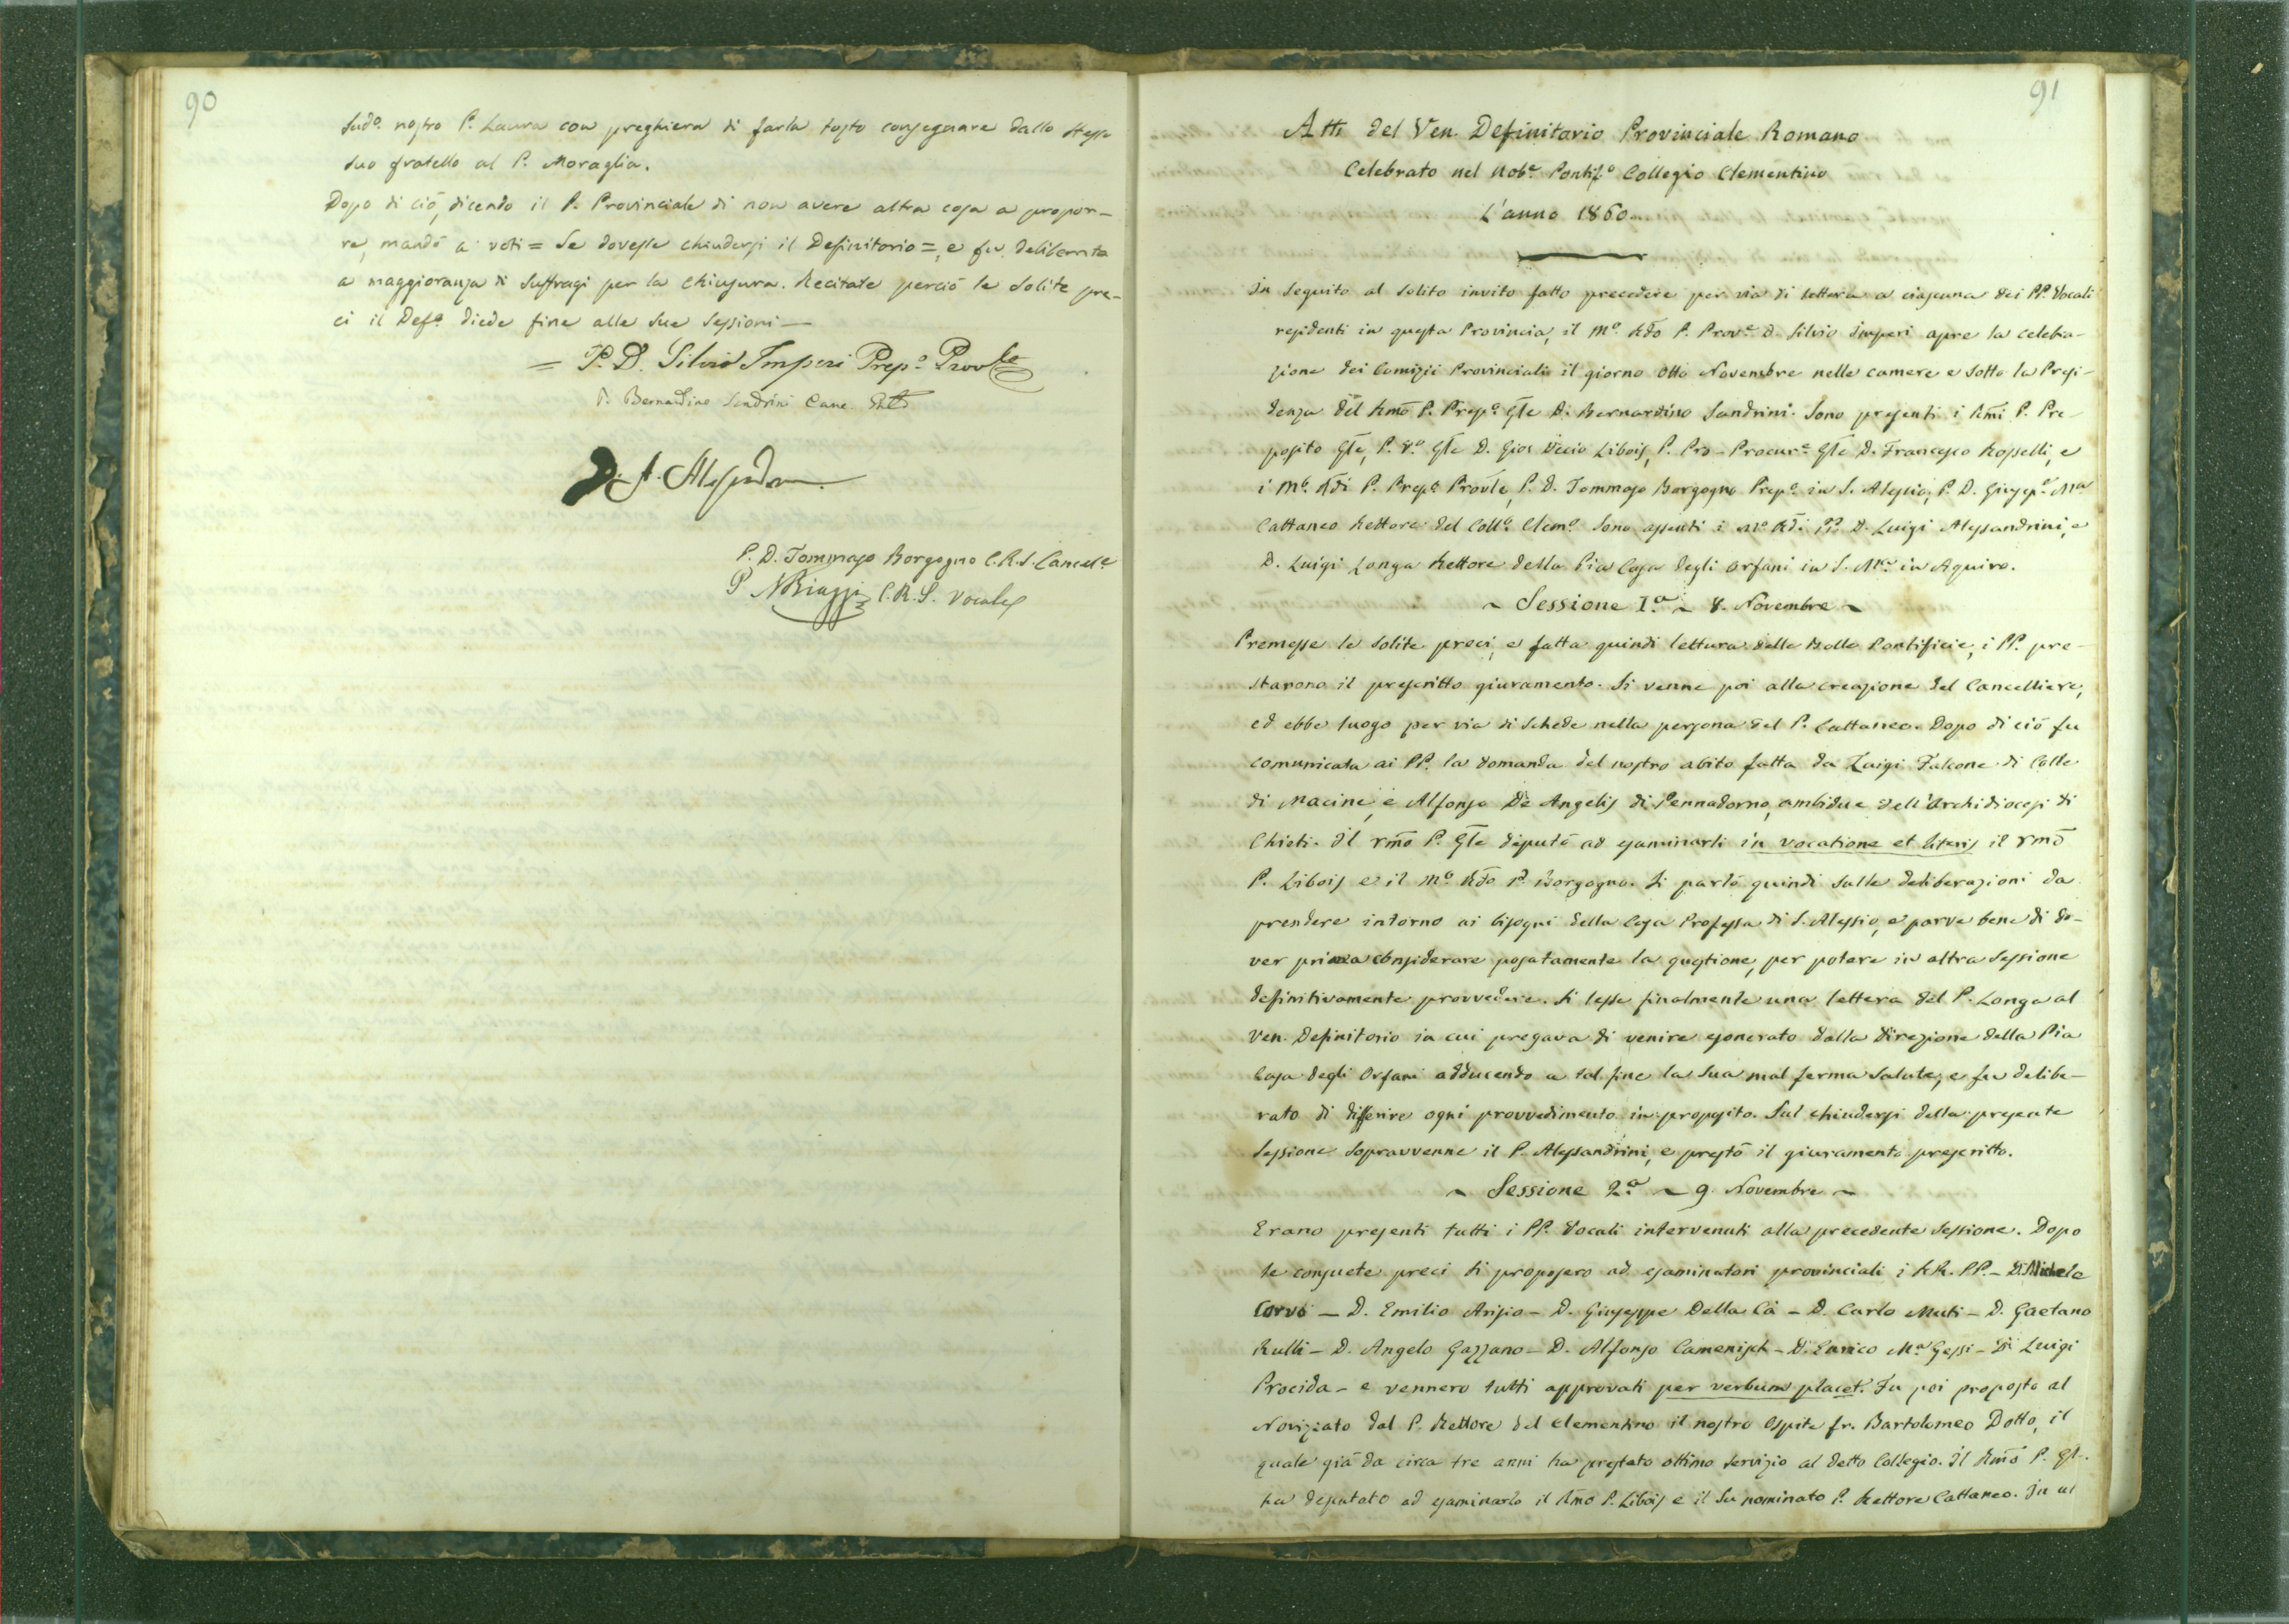 90
sudº nostro P. Laura con preghiera di farla tosto consegnare dallo stesso
suo fratello al P. Moraglia.
Dopo di ciò, dicendo il P. Provinciale di non avere altra cosa a propor-
re, mandò a voti = Se dovesse chiudersi il Definitorio =, e fu deliberato
a maggioranza di suffragi per la chiusura. Recitate perciò le solite pre-
ci il Defº diede fine alle sue sessioni —
= P. D. Silvio Imperi Prepº Provle
P. Bernardino Sandrini Canc
D. L. Alessandrini
P. D. Tommaso Borgogno C.R.S. Cancele
P NBiaggi C.R.S. Vocale
91
Atti del Ven. Definitorio Provinciale Romano
Celebrato nel Nobe Pontifº Collegio Clementino
L'anno 1860.
In seguito al solito invito fatto precedere per via di lettera a ciascuno dei PP. Vocali
residenti in questa Provincia, il Mº Rdo P. Prove D. Silvio Imperi apre la celebra-
zione dei Comizii Provinciali il giorno otto Novembre nelle camere e sotto la Presi-
denza del Rmo P. Prepº Gle D. Bernardino Sandrini. Sono presenti i Rmi P. Pre-
posito Gle, P. Vº Gle D. Gio: Decio Libois, P. Pro-Procure Gle D. Francesco Rosselli, e
i Mº Rdi P. Prepº Provle, P. D. Tommaso Borgogno Prepº in S. Alessio, P. D. Giuspe Mª
Cattaneo Rettore del Collº Clemº Sono assenti i Mº Rdi PP. D. Luigi Alessandrini, e
D. Luigi Longa Rettore della Pia Casa degli Orfani in S. Mª in Aquiro.
~ Sessione Iª ~ 8. Novembre ~
Premesse le solite preci, e fatta quindi lettura delle Bolle Pontificie, i PP. pre-
starono il prescritto giuramento. Si venne poi alla creazione del Cancelliere,
ed ebbe luogo per via di schede nella persona del P. Cattaneo. Dopo di ciò fu
comunicata ai PP. la domanda del nostro abito fatta da Luigi Falcone di Colle
di Macine, e Alfonso De Angelis di Pennadomo, ambidue dell'Archidiocesi di
Chieti. Il rmo P. Gle deputò ad esaminarli in vocatione et literis il rmo
P. Libois e il Mº Rdo P. Borgogno. Si parlò quindi sulle deliberazioni da
prendere intorno ai bisogni della Casa Professa di S. Alessio, e parve bene di do-
ver prima considerare posatamente la questione, per potere in altra sessione
definitivamente provvedere. Si lesse finalmente una lettera del P. Longa al
Ven. Definitorio in cui pregava di venire esonerato dalla direzione della Pia
Casa degli Orfani adducendo a tal fine la sua mal ferma salute, e fu delibe-
rato di differire ogni provvedimento in proposito. Sul chiudersi della presente
sessione sopravvenne il P. Alessandrini, e prestò il giuramento prescritto.
~ Sessione 2ª ~ 9 Novembre ~
Erano presenti tutti i PP. Vocali intervenuti alla precedente sessione. Dopo
le consuete preci si proposero ad esaminatori provinciali i RR. PP. – D. Michele
Corvo – D. Emilio Arisio – D. Giuseppe Della Cà – D. Carlo Muti – D. Gaetano
Rulli – D. Angelo Gazzano – D. Alfonso Camenisch – D. Enrico Mª Gessi – D. Luigi
Procida – e vennero tutti approvati per verbum placet. Fu poi proposto al
Noviziato dal P. Rettore del Clementino il nostro Ospite fr. Bartolomeo Dotto, il
quale già da circa tre anni ha prestato ottimo servizio al detto Collegio. Il Rmo P. Gle
ha deputato ad esaminarlo il Rmo P. Libois e il su nominato P. Rettore Cattaneo. In ul